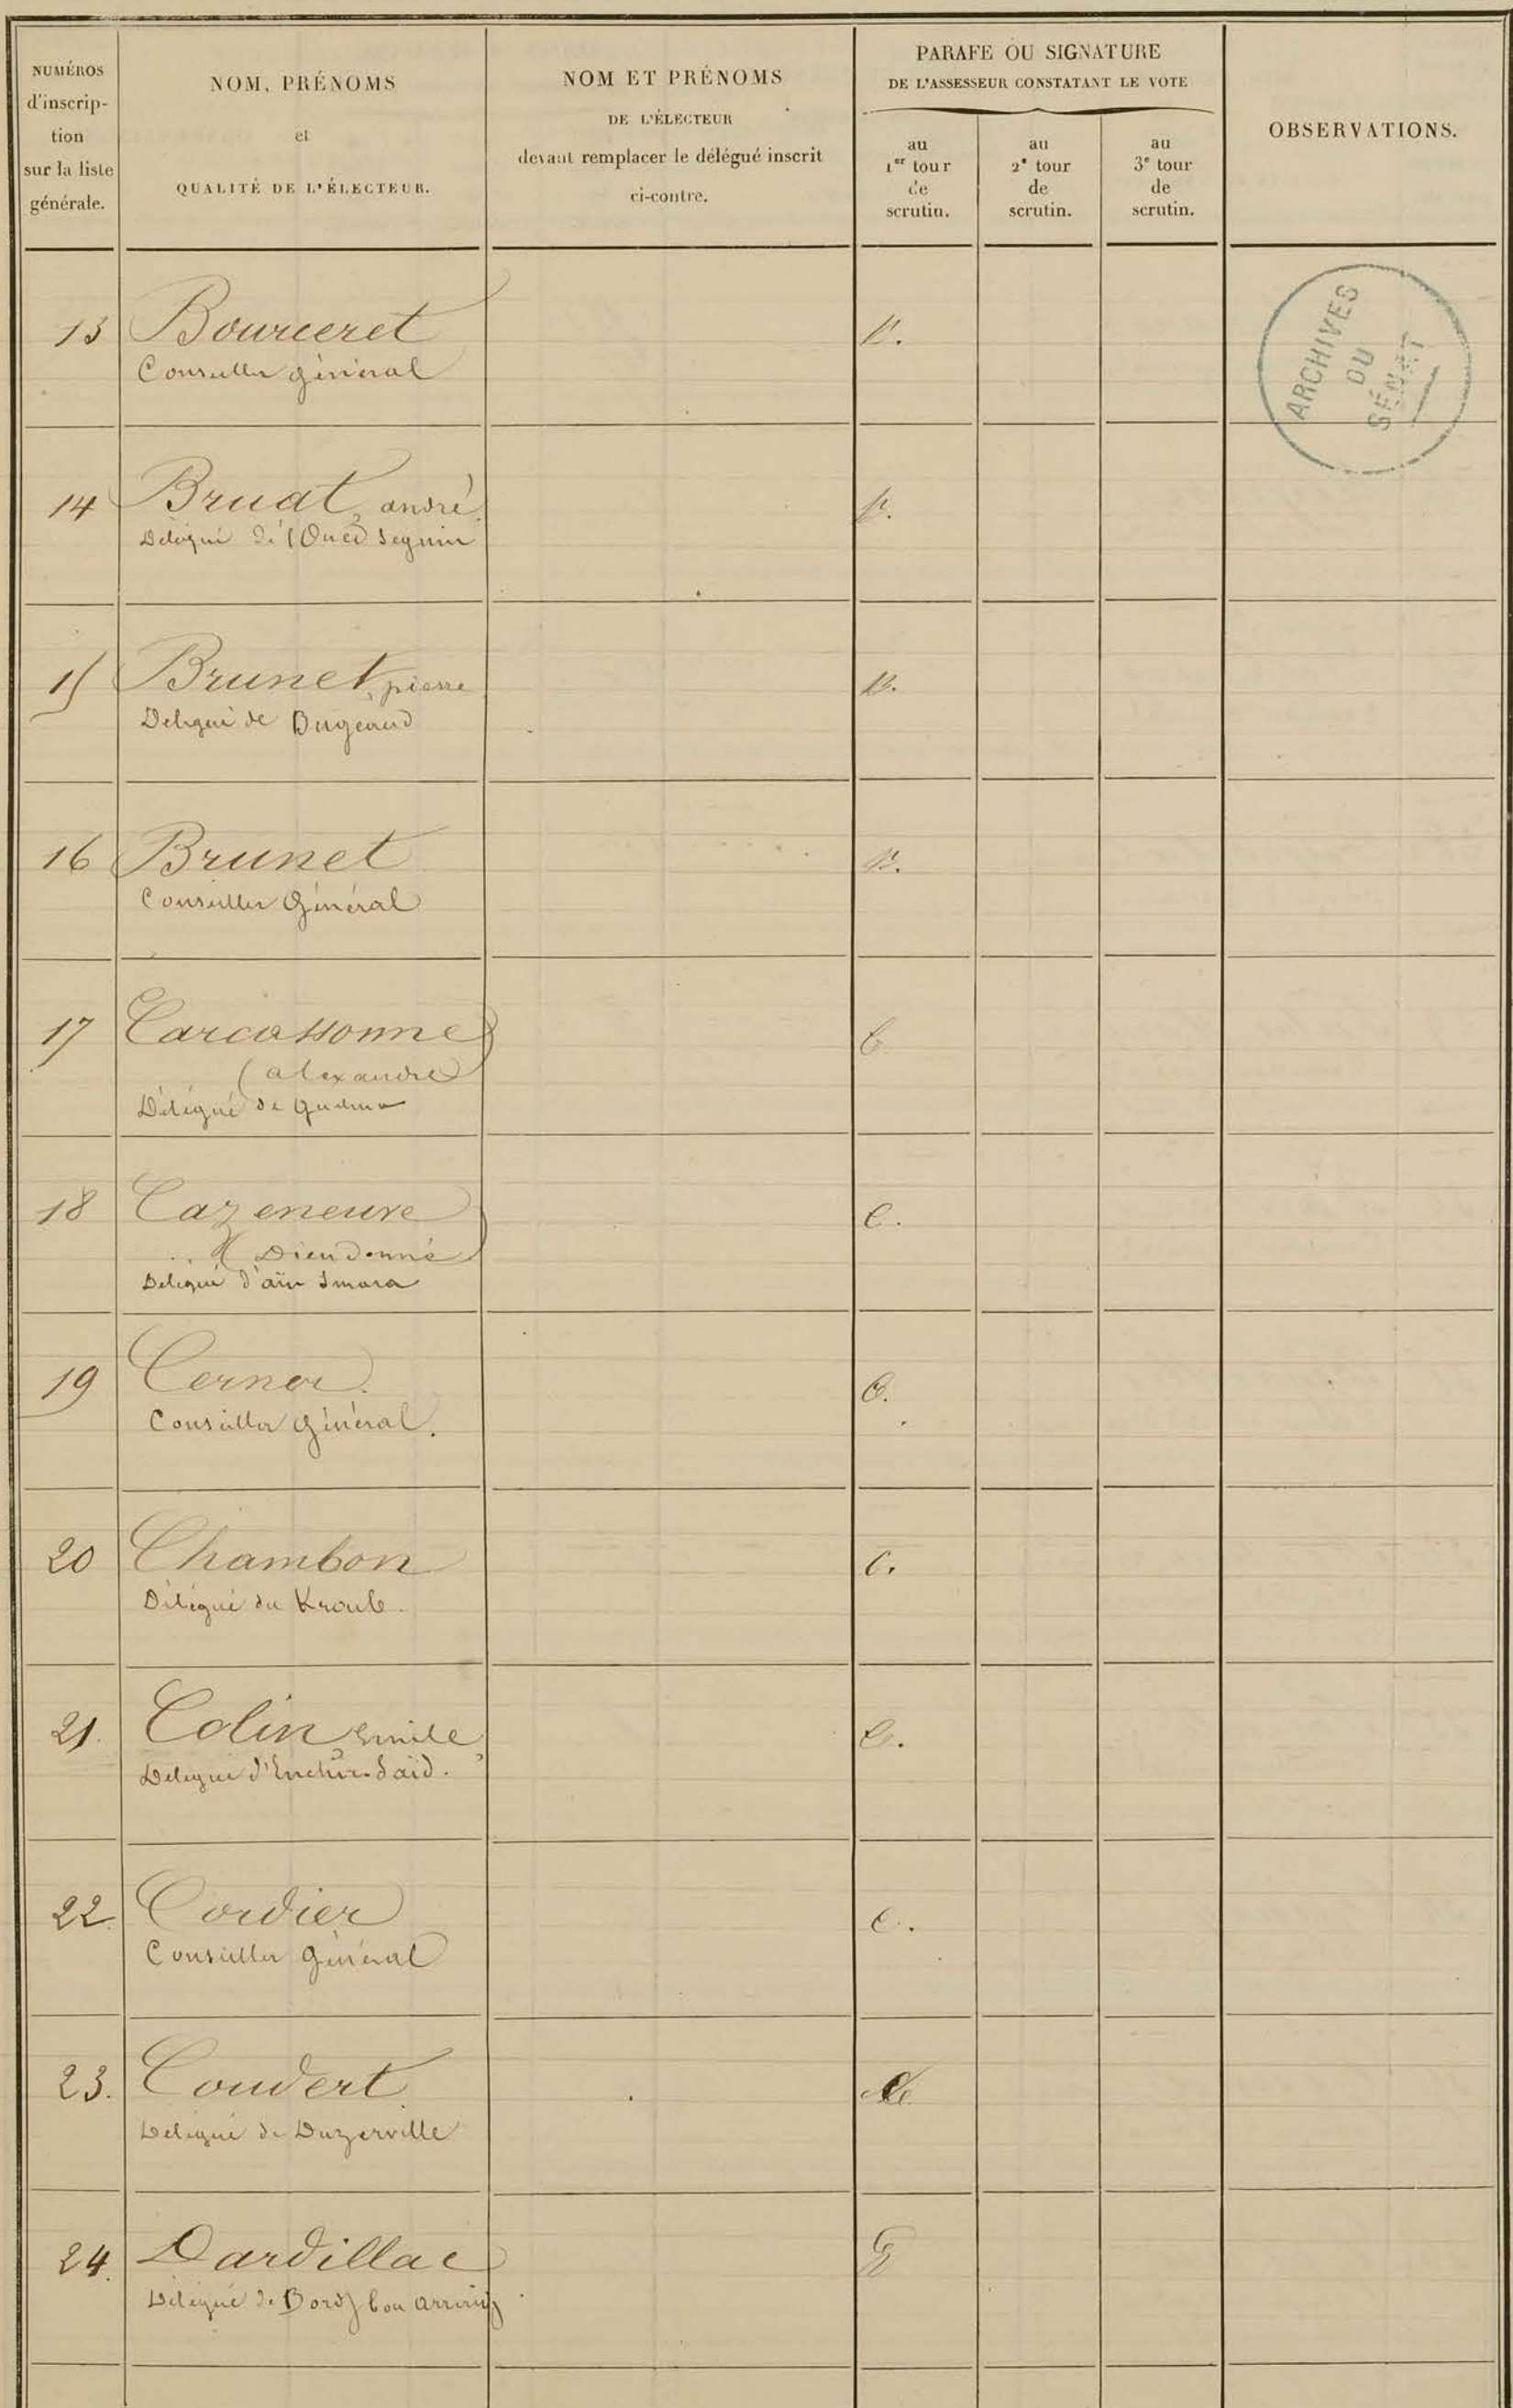 NUMÉROS
d'inscrip-
tion
sur la liste
générale.
NOM, PRÉNOMS
et
QUALITÉ DE L'ÉLECTEUR.
NOM ET PRÉNOMS
DE L'ÉLECTEUR
devant remplacer le délégué inscrit
ci-contre.
PARAFE OU SIGNATURE
DE L'ASSESSEUR CONSTATANT LE VOTE
au
1er tour
de
scrutin.
au
2e tour
de
scrutin.
au
3e tour
de
scrutin.
OBSERVATIONS.
ARCHIVES
DU
SÉNAT
13 Bourceret
Conseiller général
14 Bruat, andré
Délégué de l'Oued Seguin
15 Brunet, pierre
Délégué de Bugeaud
16 Brunet
Conseiller Général
17 Carcassonne
(alexandre)
Délégué de Guelma
C
18 Cazeneuve
(Dieudonné)
Délégué d'aïn Smara
C.
19 Cerner.
Conseiller général.
C.
20 Chambon
Délégué du Kroub.
C.
21. Colin, Emile,
Délégué d'Enchir-Saïd.
C.
22. Cordier
Conseiller général
C.
23. Coudert
Délégué de Duzerville
C
24. Dardillac
Délégué de Bordj bou arreridj